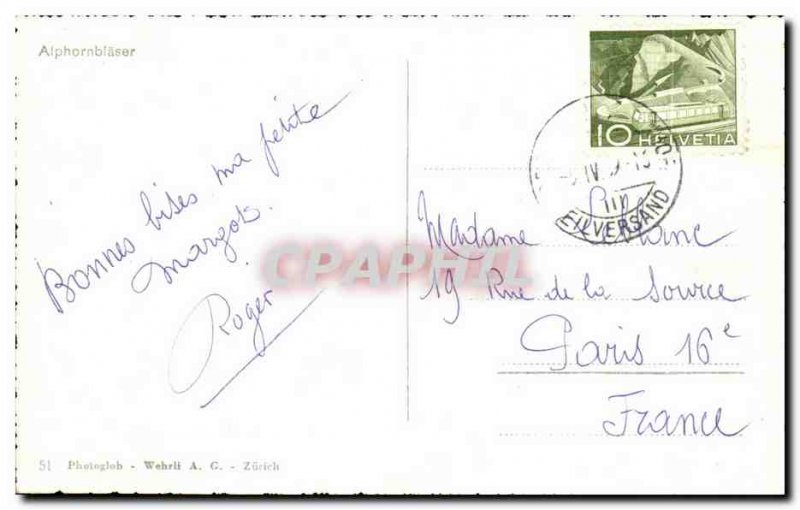 Alphornbläser
Bonnes bises ma petite
margots.
Roger
51 Photoglob - Wehrli A. G. - Zürich
10 HELVETIA
EILVERSAND
Madame
19 Rue de la Source
Paris 16e
France
CPAPHIL